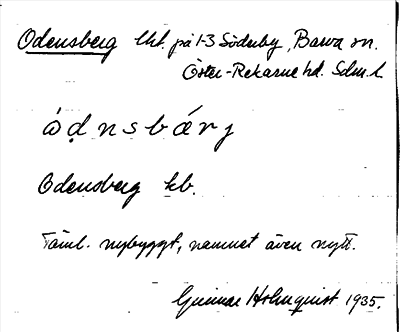 Odensberg lht. på 1-3 Söderby, Barva sn.
Öster-Rekarne hd. Sdm. l.
ódnsbárj
Odensberg kb.
Täml. nybyggt, namnet även nytt.
Gunnar Holmquist 1935.